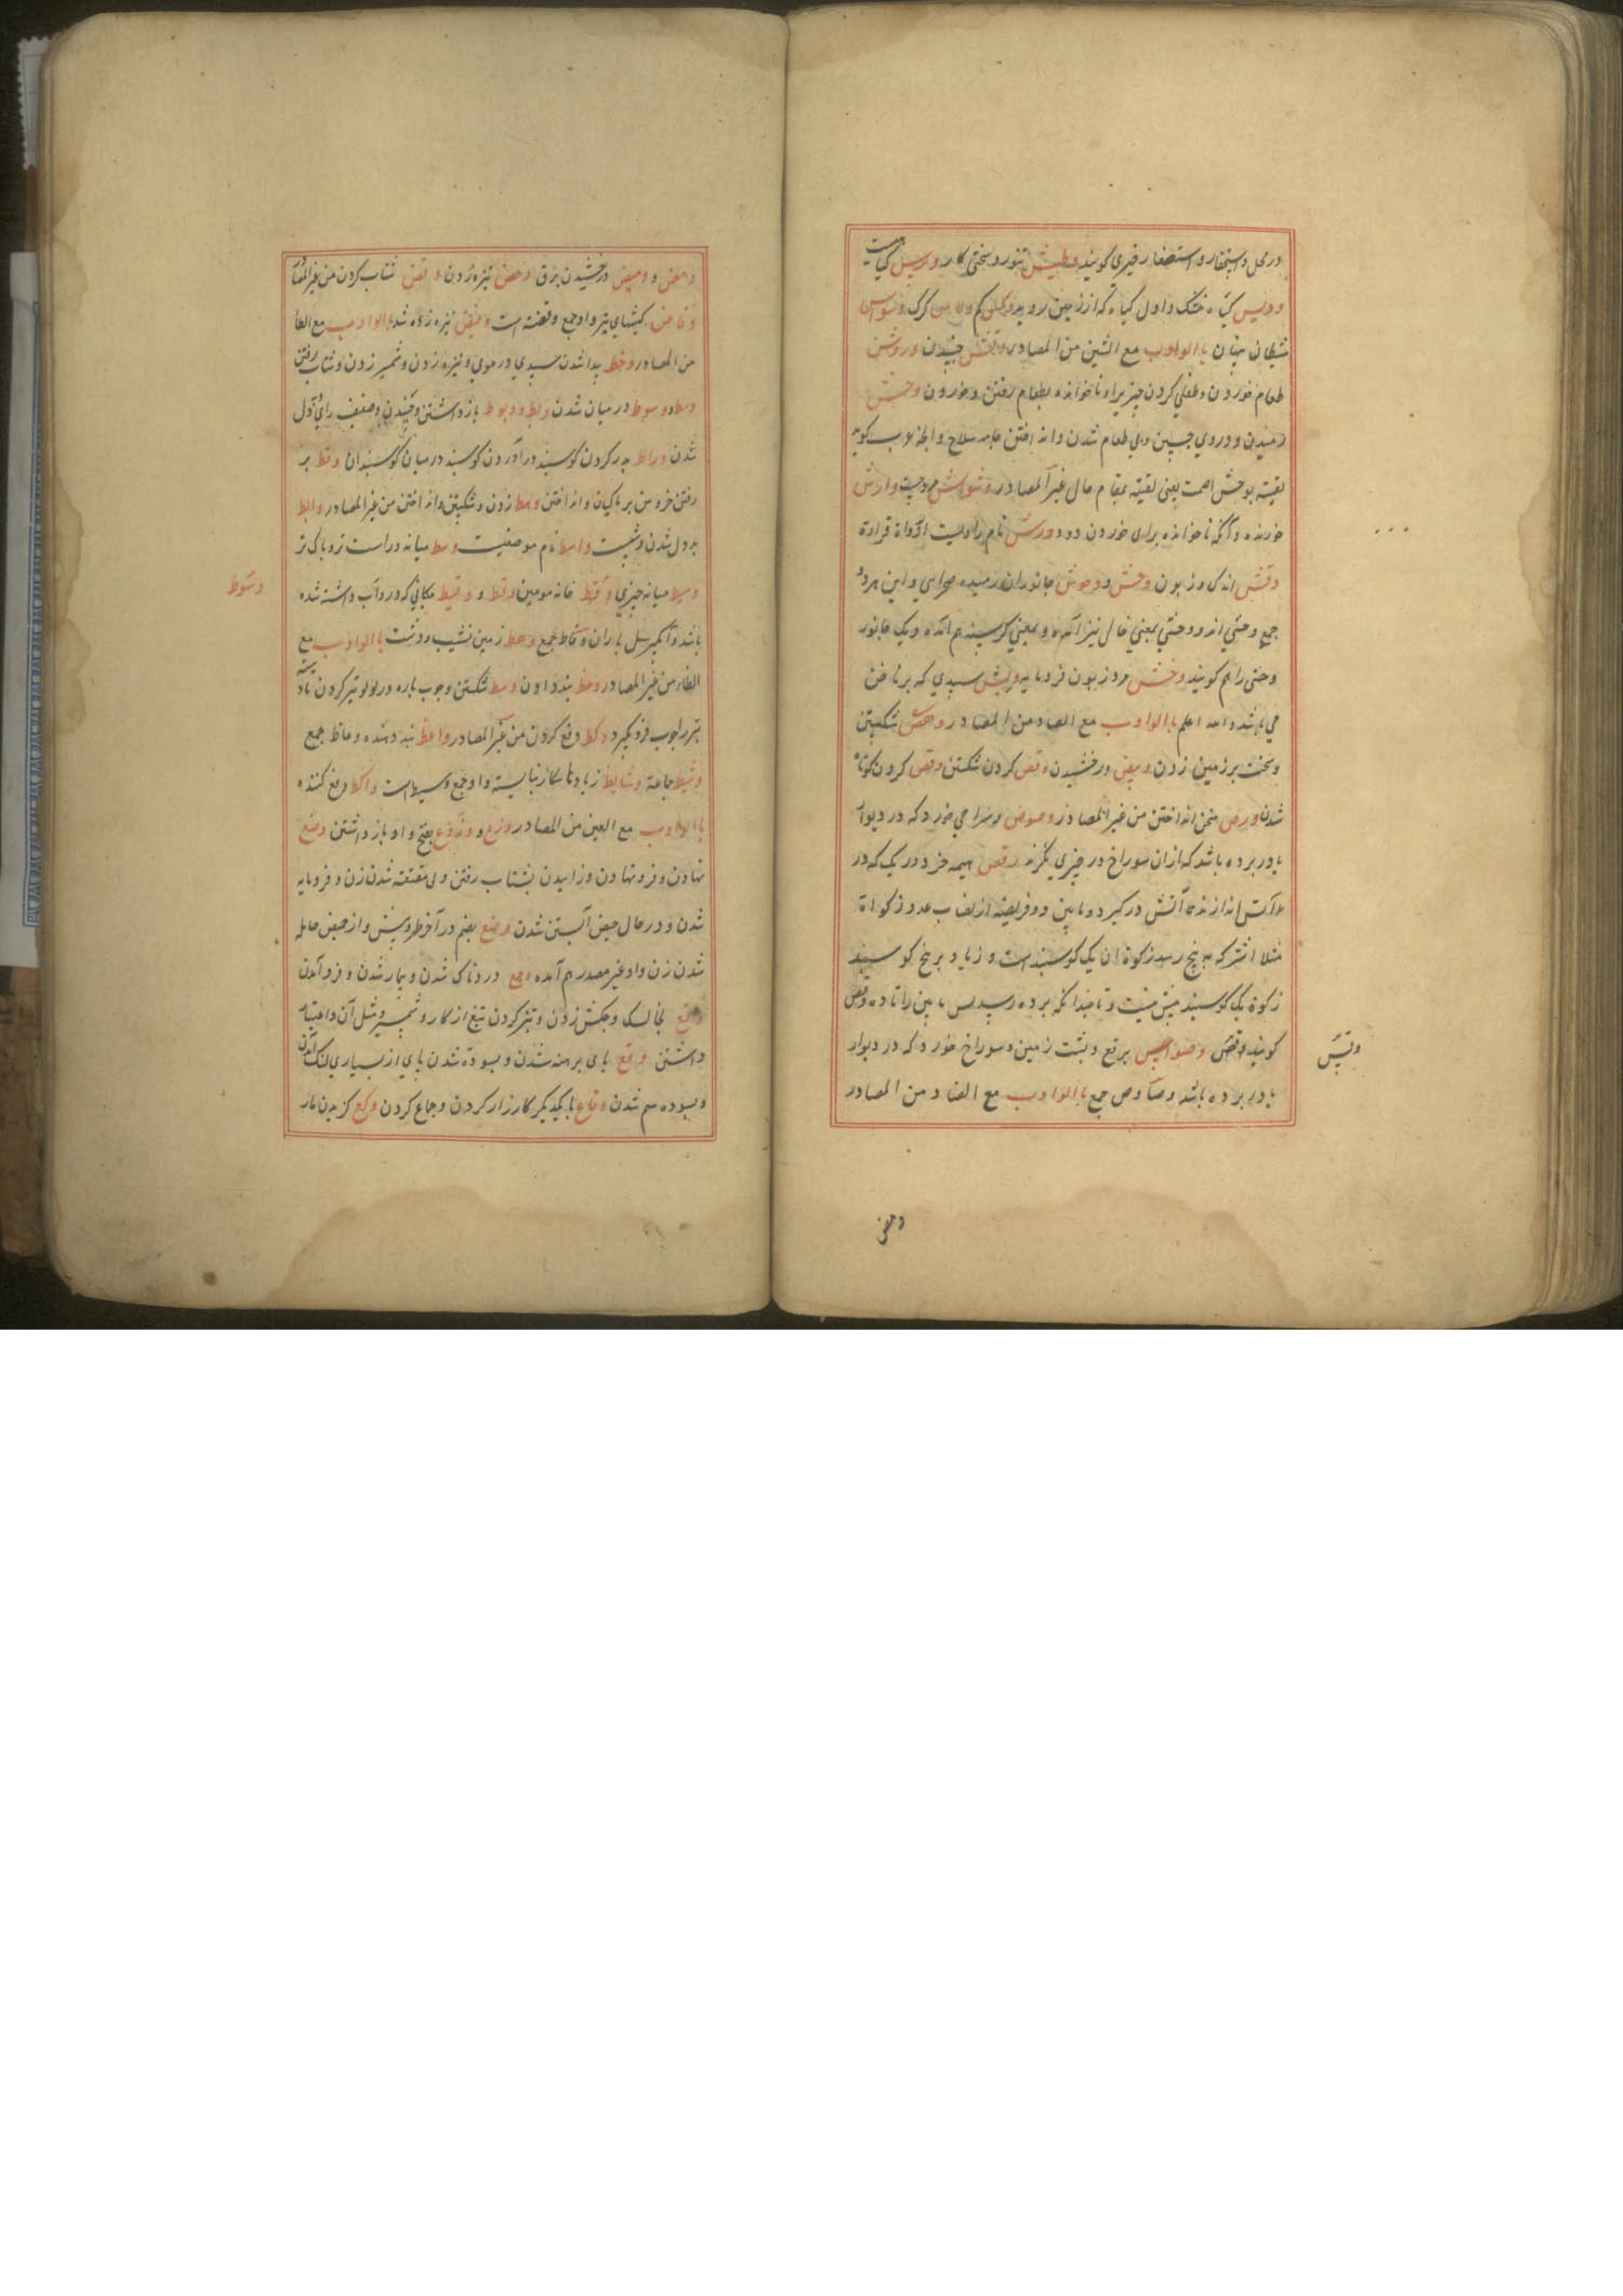 در محل استحقار و استصغار فیری کویند وطیس تنور و سختی کار وریس کیاهیست
ودیس کیاه خشک و اول کیاه که از زمین روید وکس کم ولاس کرک وسواس
شیطان بنان باالواوب مع الشین من المصادر وقش جنبیدن وروش
طعام خوردن و طفلی کردن ناخوانده بطعام رفتن و خوردن وحش
رمیدن و دروی بی طعام شدن و انداختن جامه سلاح و الخ عرب کوید
لقیته بوحش اصمت یعنی لقیته بمقام خال غیر المصادر وشواش مرد جست وارش
خورنده و آنکه ناخوانده برای خوردن دود ورش نام راویست از رواة قراءة
وتش اندک و زبون وحش و وحوش جانوران رمیده صحرایی و این هردو
جمع وحشی اند و وحشی بمعنی خالی نیز آمده و بمعنی کرسنه هم آمده و یک جانور
وحشی را هم کویند وخش مرد زبون فرومایه وبش سپیدی که بر ناخن
می باشد والله اعلم باالواوب مع الصاد من المصادر وهص شکستن
و سخت بر زمین زدن وبیص درخشیدن وقص کردن شکستن وقص کردن کوتاه
شدن ورص سخن انداختن من غیر المصادر وصوص سوراخی خورد که در دیوار
یا در برده باشد که از آن سوراخ در چیزی نکرند وقص هیمه خرد در یک که در
آتش اندازند تا آتش در کیرد و مابین دو فریضه از نصاب عدد زکواة
مثلا اشتر که به پنج رسد زکوة آن یک کوسبند است و زیاد بر پنج کوسبند
زکوة یک کوسبند بیش نیست و تا مدامکه بر ده رسد پس مابین را تا ده وقص
کویند وقص وصواوص برقع و بشت زمین و سوراخ خورد که در دیوار
یا در برده باشد وصاوص جمع باالواوب مع الضاد من المصادر
وبیس
ومض
ومض و ومیض درخشیدن برق وخض نیزه زدن وفض شتاب کردن من غیر المصاد
وفاض کیشهای تیر واو جمع وفضه است وخیض نیزه زده شد باالواوب مع الطا
من المصادر وخط پیدا شدن سپیدی در موی و نیزه زدن و شمشیر زدن و شتاب رفتن
وسط و وسوط در میان شدن وبط و وبوط بازداشتن و ضعیف رای و بد دل
شدن وراط بدر کردن کوسبند در آوردن کوسبند در میان کوسبندان وقط بر
رفتن خروس بر ماکیان و انداختن وهط زدن و شکستن و انداختن من غیر المصادر وابط
بددل شدن واسط نام موضعیت وسط میانه و راست تر و باک تر
وسیط میانه چیزی وقط خانه مومین وقط و وقیط مکانی که در و آب داشته شده
وسوط
باشد و آبکیر سیل باران وقاط جمع وهط زمین نشیب و دشت باالواوب مع
الظاء من غیر المصادر وعظ بند دادن وشظ شکستن و چوب باره در لولو تیر کردن تا دسته
تبر را چوب فرو کیرد وکظ دفع کردن من غیر المصادر واعظ بند دهنده وعاظ جمع
وشیظ جماعة وشایظ زیادتها که بکار نبایسته واو جمع وشیظ است واکظ دفع کننده
باالواوب مع العین من المصادر وزع و وزوع بفتح واو بازداشتن وضع
نهادن و فرو نهادن و زاییدن بشتاب رفتن و بی مقنعه شدن زن و فرومایه
شدن و در حال حیض آبستن شدن وضع بضم در آخر طهر و پیش از حیض حامله
شدن زن واو غیر مصدر هم آمده وجع دردناک شدن و بیمار شدن و فرو آمدن
وقع بخالسک و چکش زدن و تیز کردن تیغ از کارد و شمشیر و مثل آن و اعتبار
داشتن وقع پای برهنه شدن و سوده شدن پای از بسیاری لنک آمدن
و سوده سم شدن وقاع با یکدیکر کارزار کردن و جماع کردن وکع کزیدن مار